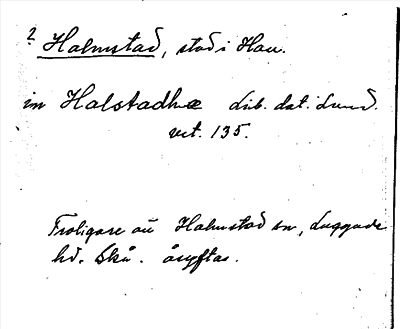 ? Halmstad, stad i Hall.
in Halstadhæ Lib. dat. Lund.
vet. 135.
Troligare än Halmstad sn, Luggude
hd. Skå. åsyftas.